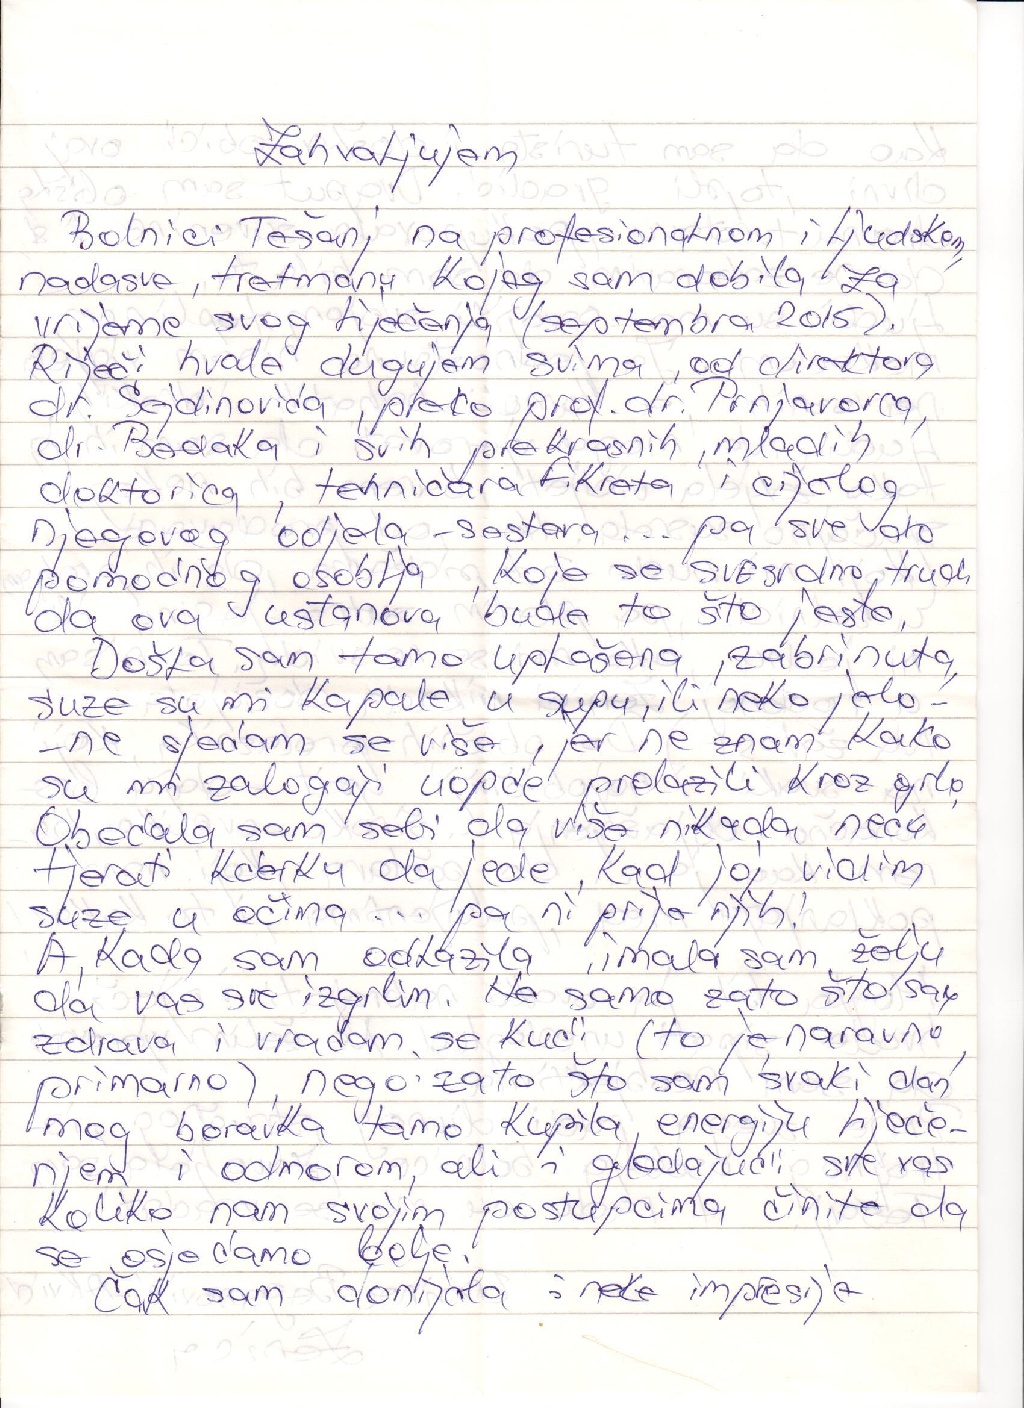 Zahvaljujem
Bolnici Tešanj na profesionalnom i ljudskom,
nadasve, tretmanu kojeg sam dobila za
vrijeme svog liječenja (septembra 2015).
Riječi hvale dugujem svima, od direktora
dr. Sejdinovića, preko prof. dr. Prnjavorca,
dr. Bedaka i svih prekrasnih, mladih
doktorica, tehničara Fikreta i cijelog
njegovog odjela - sestara... pa sve do
pomoćnog osoblja, koje se svesrdno trudi
da ova ustanova bude to što jeste.
Došla sam tamo uplašena, zabrinuta,
suze su mi kapale u supu, ili neko jelo -
- ne sjećam se više, jer ne znam kako
su mi zalogaji uopće prolazili kroz grlo.
Obećala sam sebi da više nikada neću
tjerati kćerku da jede, kad joj vidim
suze u očima ... pa ni prije njih!
A, kada sam odlazila, imala sam želju
da vas sve izgrlim. Ne samo zato što sam
zdrava i vraćam se kući (to je naravno,
primarno), nego zato što sam svaki dan
mog boravka tamo kupila energiju liječe-
njem i odmorom, ali i gledajući sve vas
koliko nam svojim postupcima činite da
se osjećamo bolje.
Čak sam donijela i neke impresije